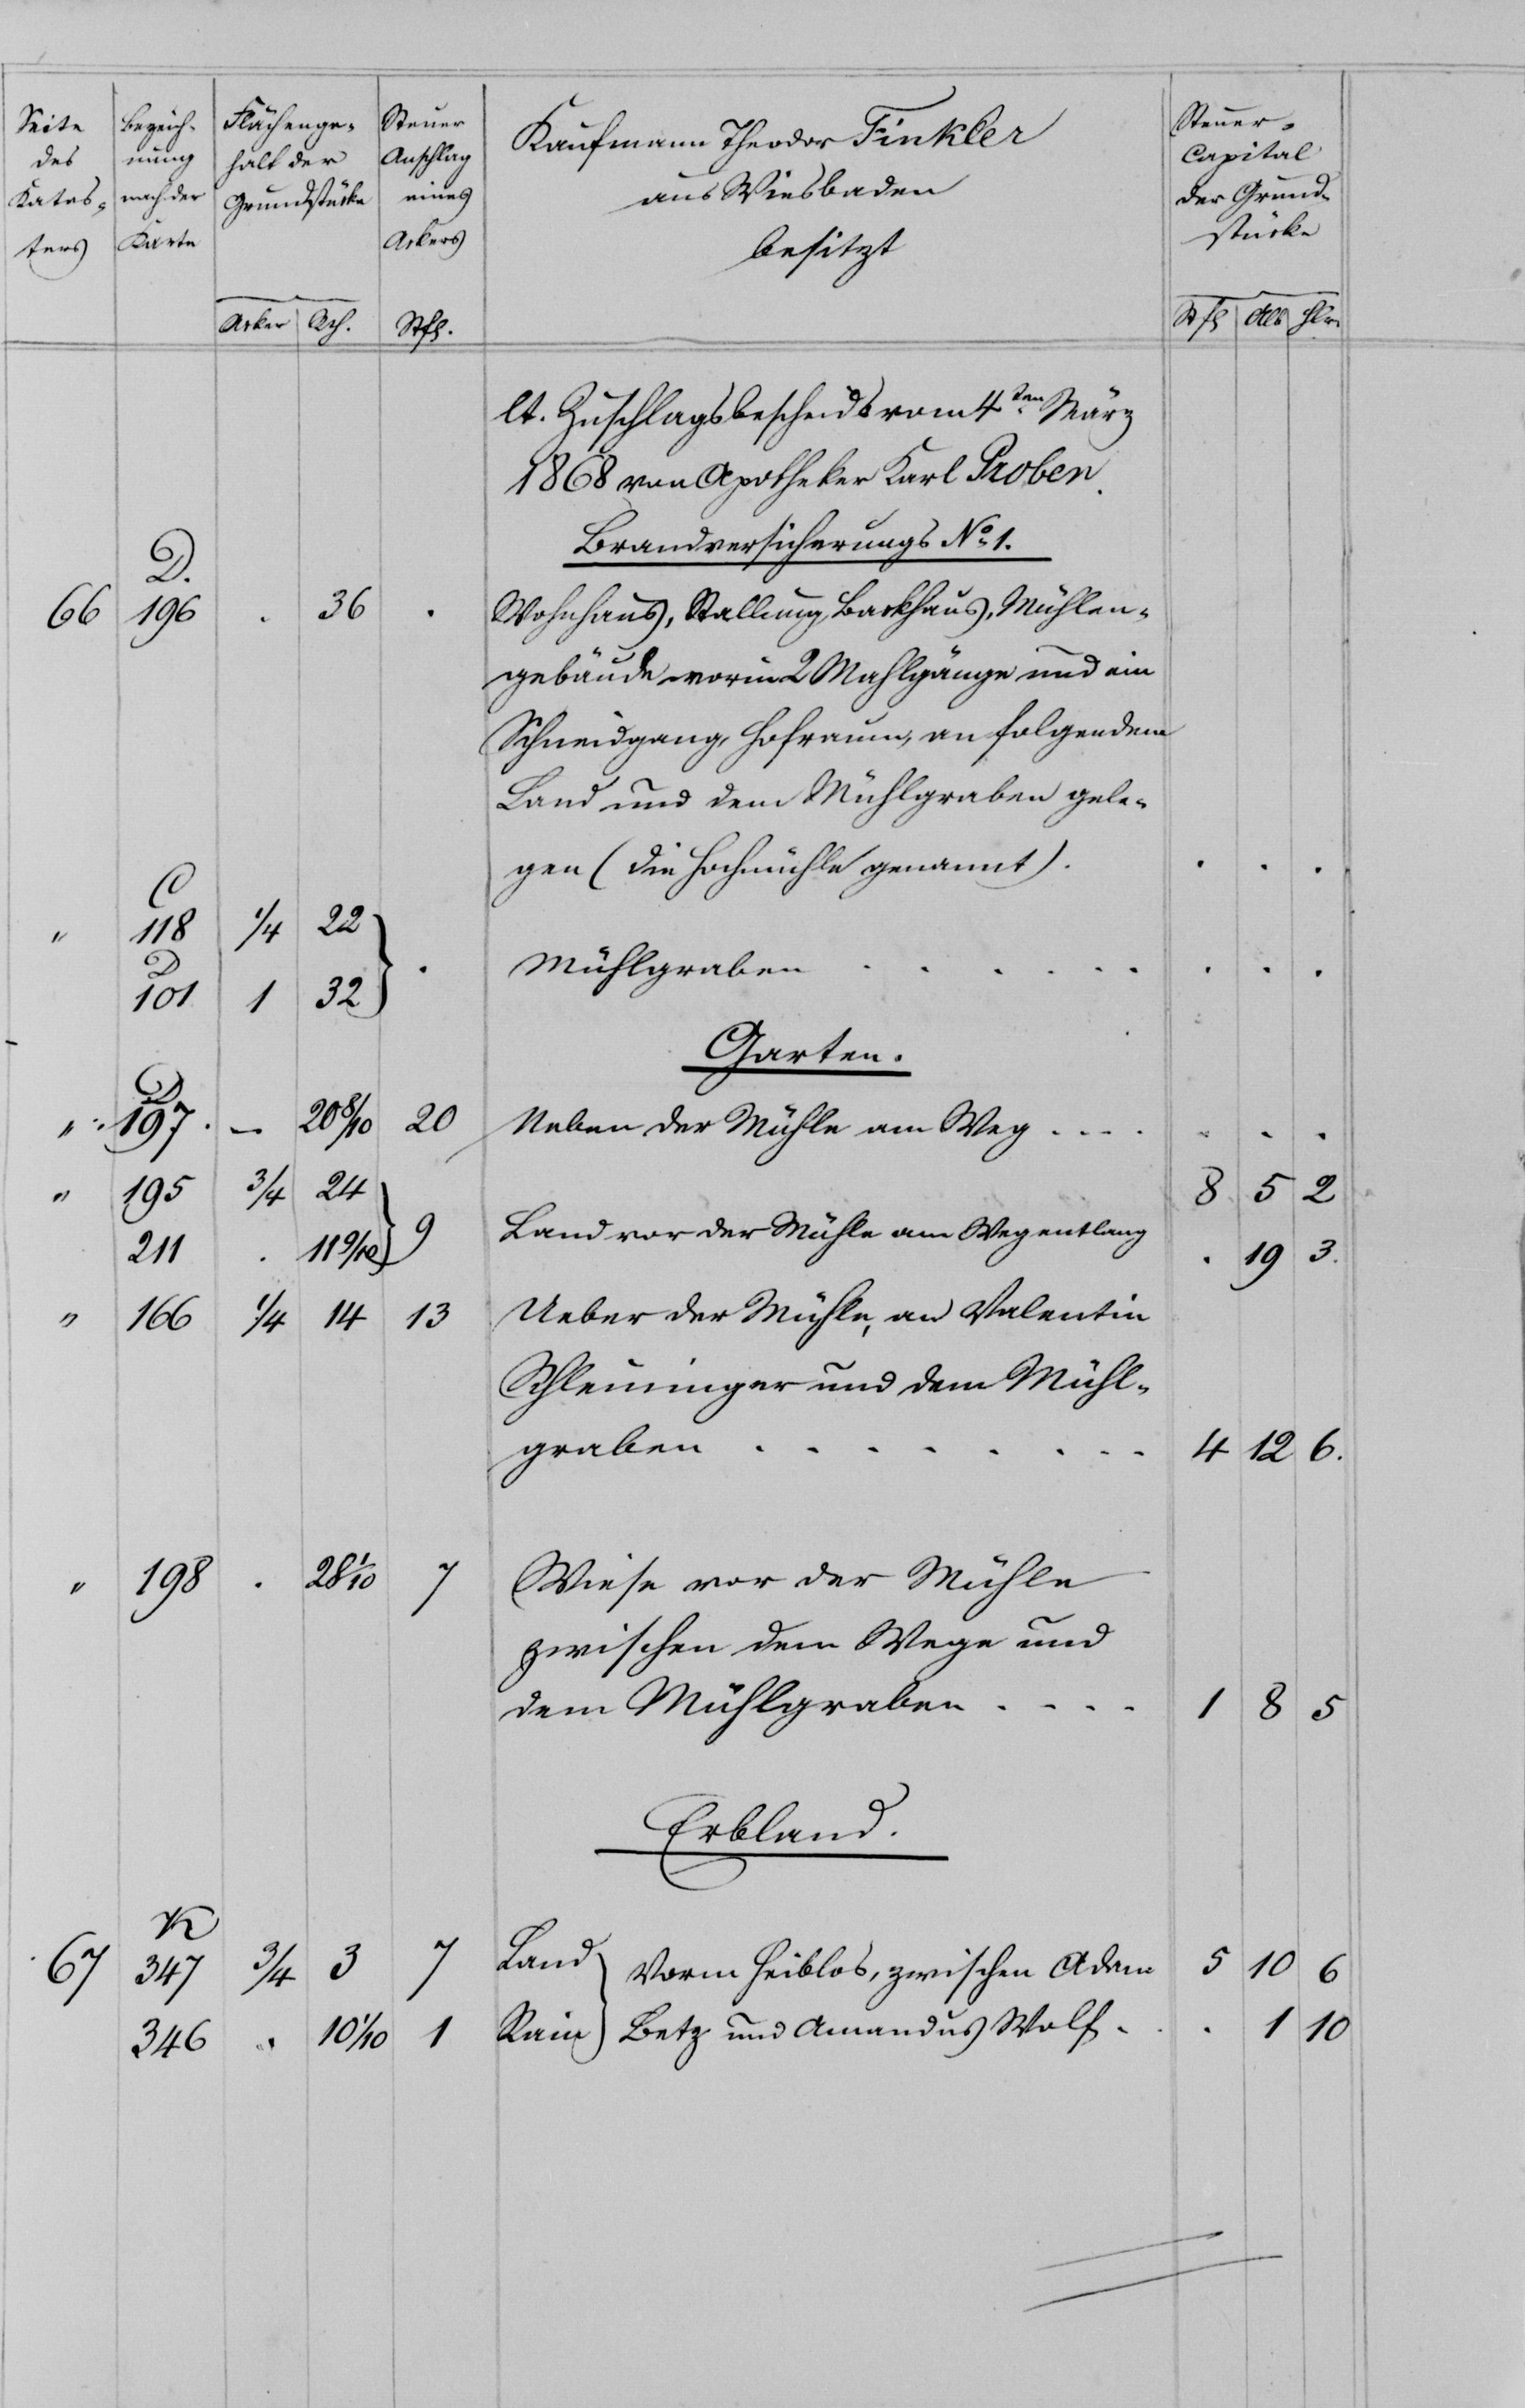 Seite des Katas- ters | Bezeich- nung nach der Karte | Flächenge- halt der Grundstücke | Steuer Anschlag eines Ackers | Kaufmann Theodor Finkler | Steuer- Capital der Grund- stücke
aus Wiesbaden
besitzt
Acker | Rth. | Stfl. | Stfl | Alb | Hlr
lt. Zuschlagsbescheids vom 4ten März
1868 von Apotheker Karl Proben.
Brandversicherungs No 1.
D.
66 196 . 36 . Wohnhaus, Stallung, Backhaus, Mühlen-
gebäude worin 2 Mahlgänge und ein
Schneidgang, Hofraum, an folgendem
Land und dem Mühlgraben gele-
gen (die Hochmühle genannt). . . .
C
" 118 1/4 22
D
101 1 32 . Mühlgraben . . . . . . . . .
Garten.
D
" 197. – 20 8/10 20 Neben der Mühle am Weg . . . . . . .
" 195 3/4 24 8 5 2
9 Land vor der Mühle am Weg entlang
211 . 11 9/10 . 19 3.
" 166 1/4 14 13 Ueber der Mühle, an Valentin
Schleuninger und dem Mühl-
graben . . . . . . . . 4 12 6.
" 198 . 28 1/10 7 Wiese vor der Mühle
zwischen dem Wege und
dem Mühlgraben . . . . 1 8 5
Erbland.
K
67 347 3/4 3 7 Land Vorm Heiblos, zwischen Adam 5 10 6
346 " 10 1/10 1 Rain Betz und Amandus Wolf . . . 1 10